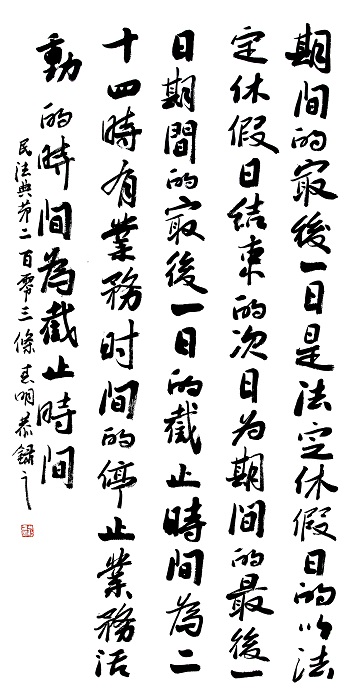 期间的最後一日是法定休假日的以法
定休假日結束的次日為期间的最後一
日期間的最後一日的截止時间為二
十四時有業務时间的停止業務活
動的時间為截止時间
民法典第二百零三條 明恭錄之